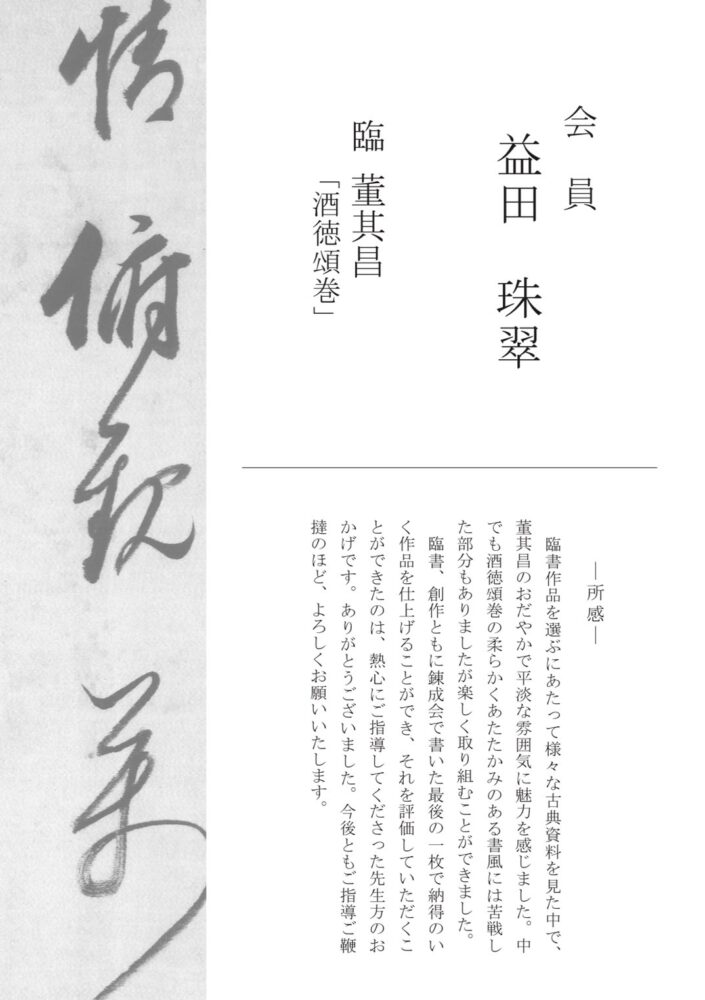 会員
益田 珠翠
臨 董其昌
「酒徳頌巻」
―所感―
臨書作品を選ぶにあたって様々な古典資料を見た中で、
董其昌のおだやかで平淡な雰囲気に魅力を感じました。中
でも酒徳頌巻の柔らかくあたたかみのある書風には苦戦し
た部分もありましたが楽しく取り組むことができました。
臨書、創作ともに錬成会で書いた最後の一枚で納得のい
く作品を仕上げることができ、それを評価していただくこ
とができたのは、熱心にご指導してくださった先生方のお
かげです。ありがとうございました。今後ともご指導ご鞭
撻のほど、よろしくお願いいたします。
情俯観萬